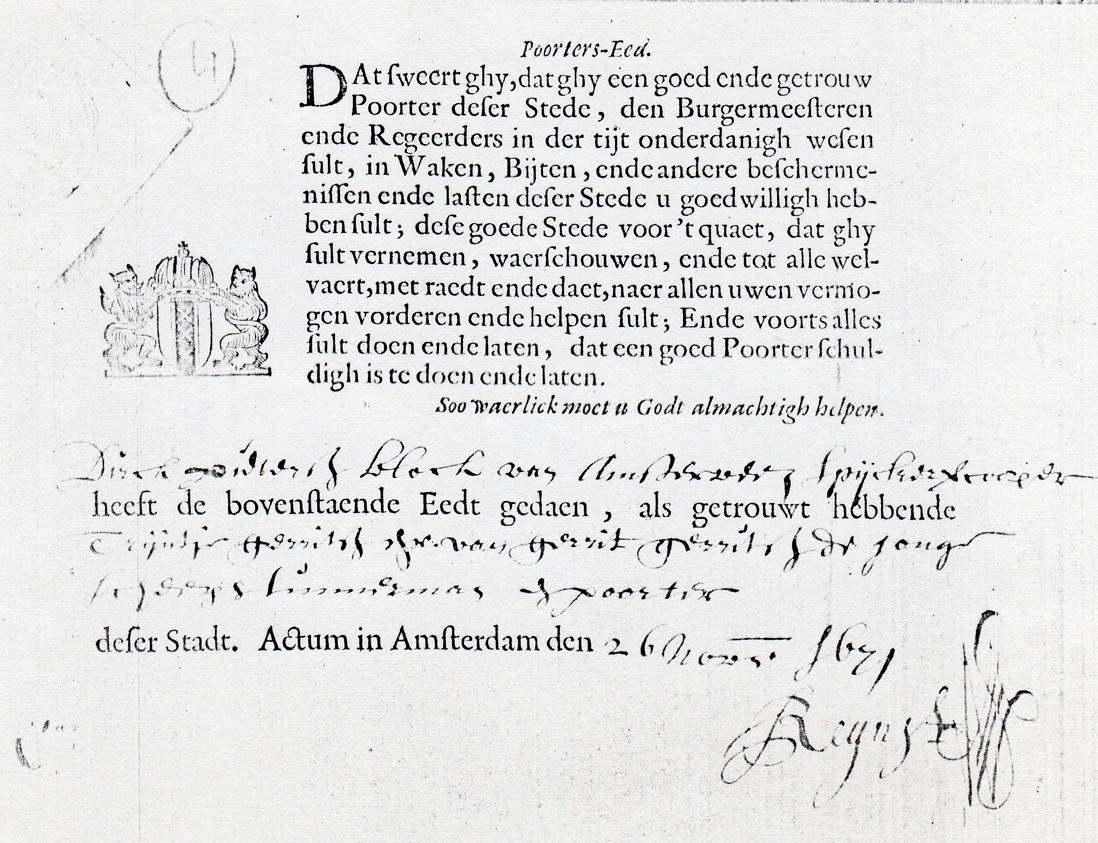 4
Poorters-Eed.
DAt sweert ghy, dat ghy een goed ende getrouw
Poorter deser Stede, den Burgermeesteren
ende Regeerders in der tijt onderdanigh wesen
sult, in Waken, Bijten, ende andere bescherme-
nissen ende lasten deser Stede u goedwilligh heb-
ben sult; dese goede Stede voor 't quaet, dat ghy
sult vernemen, waerschouwen, ende tot alle wel-
vaert, met raedt ende daet, naer allen uwen vermo-
gen vorderen ende helpen sult; Ende voorts alles
sult doen ende laten, dat een goed Poorter schul-
digh is te doen ende laten.
Soo waerlick moet u Godt almachtigh helpen.
Dirck pietersz block van Amsterveen Spijckerkooper
heeft de bovenstaende Eedt gedaen, als getrouwt hebbende
Trijntje gerrits dr. van gerrit gerritsz de jonge
scheeps timmerman en poorter
deser Stadt. Actum in Amsterdam den 26 Novem 1671